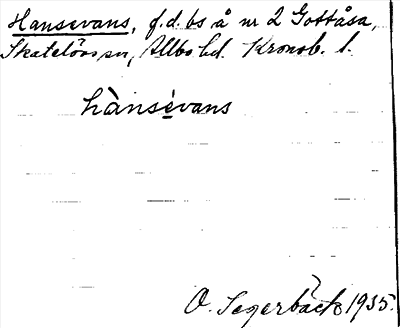 Hansevans, f.d. bs å nr 2 Gottåsa,
Skatelövs sn, Allbo hd. Kronob. l.
hànsévans
O. Segerbäck 1935.